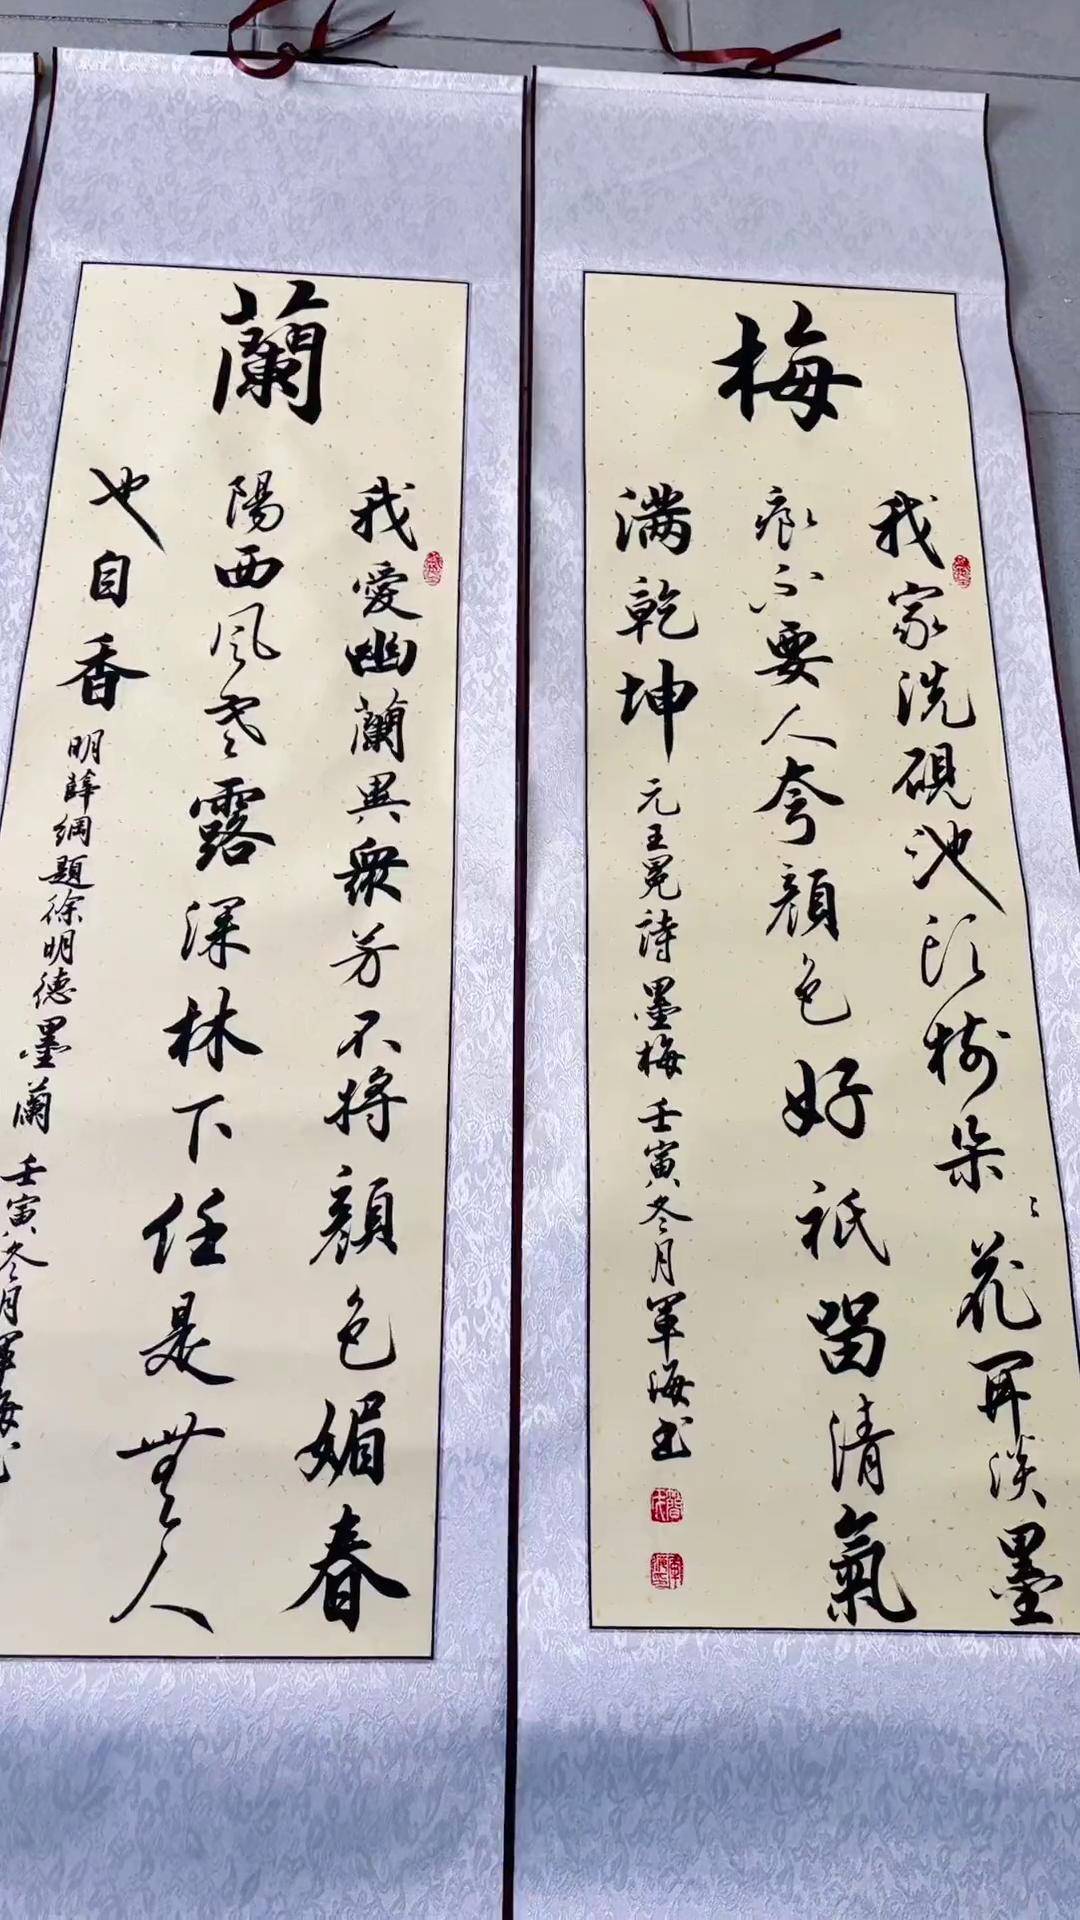 梅
我家洗硯池头樹朵〻花開淡墨
痕不要人夸顔色好祇留清氣
满乾坤
元王冕詩墨梅 壬寅冬月軍海书
蘭
我愛幽蘭異衆芳不將顔色媚春
陽西风寒露深林下任是無人
也自香
明薛網題徐明德墨蘭 壬寅冬月軍海书